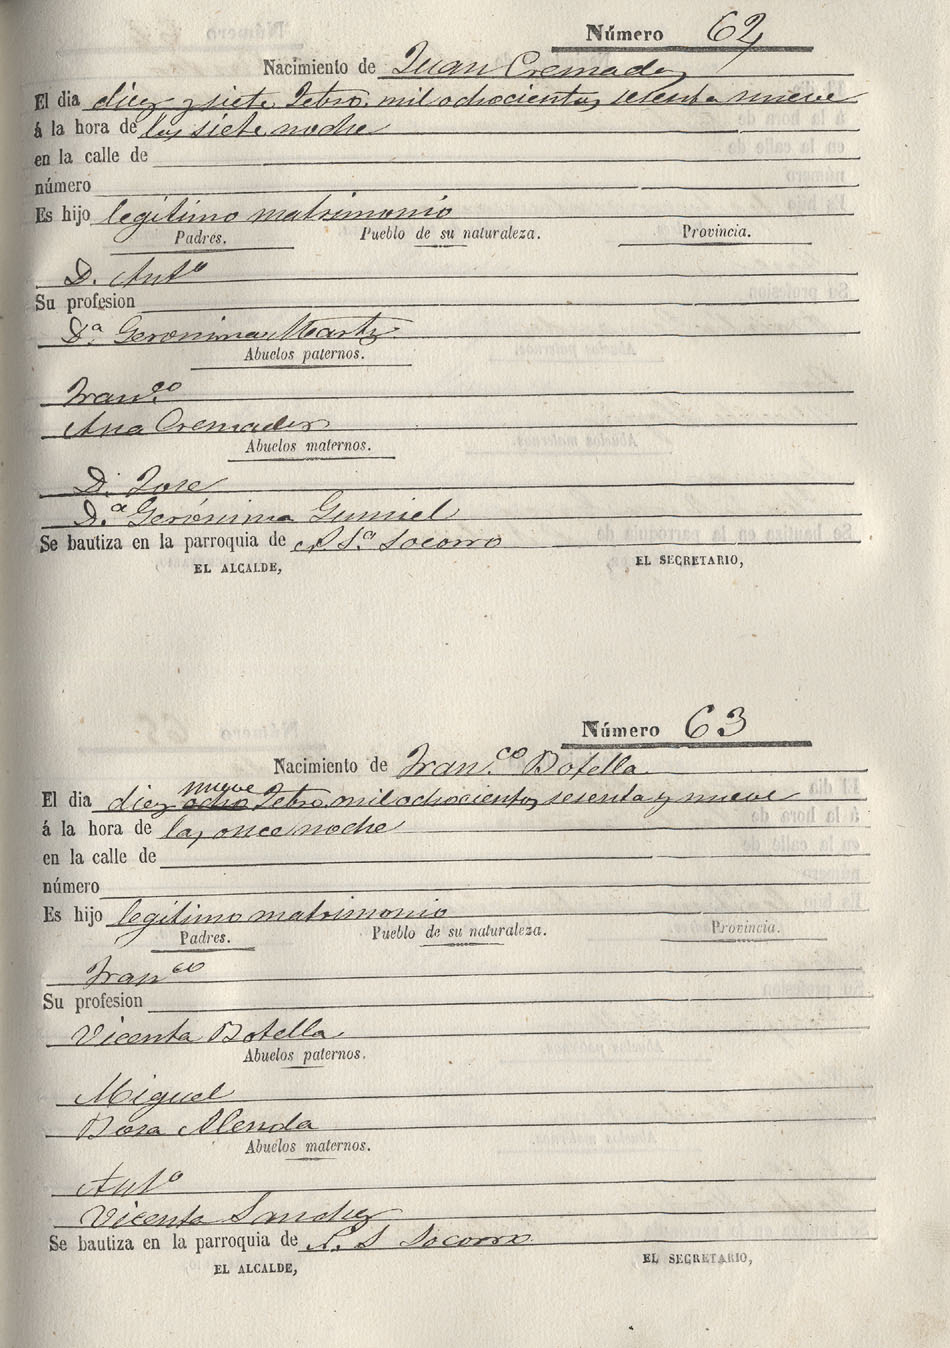 Número 62
Nacimiento de Juan Cremades
El dia diez y siete Febro. mil ochocientos sesenta nueve
á la hora de las siete noche
en la calle de
número
Es hijo legítimo matrimonio
Padres. Pueblo de su naturaleza. Provincia.
D. Anto
Su profesion
Da. Geronima Martz
Abuelos paternos.
Franco.
Ana Cremades
Abuelos maternos.
D. Jose
D.a Gerónima Gumiel
Se bautiza en la parroquia de N. Sa Socorro
EL ALCALDE, EL SECRETARIO,
Número 63
Nacimiento de Fran.co Botella
nueve
El dia diez ocho Febro. mil ochocientos sesenta y nueve
á la hora de las once noche
en la calle de
número
Es hijo legítimo matrimonio
Padres. Pueblo de su naturaleza. Provincia.
Franco
Su profesion
Vicenta Botella
Abuelos paternos.
Miguel
Rosa Alenda
Abuelos maternos.
Anto
Vicenta Sanchez
Se bautiza en la parroquia de N. S Socorro
EL ALCALDE, EL SECRETARIO,